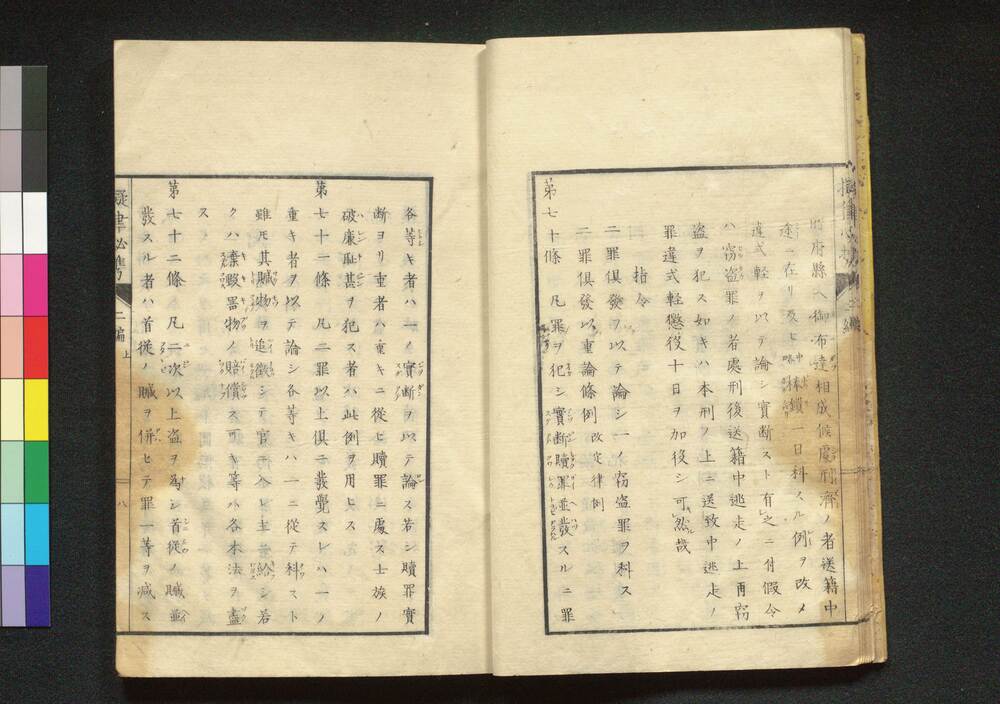 府縣ヘ御布達相成候處刑濟ノ者送籍中
途ニ在リ及ヒ中棒鎖一日科スル例ヲ改メ
違式輕ヲ以テ論シ實断スト有之ニ付假令
ハ窃盗罪ノ者處刑後送籍中逃走ノ上再窃
盗ヲ犯ス如キハ本刑ノ上ニ送致中逃走ノ
罪違式軽懲役十日ヲ加役シ可然哉
指令
二罪倶發ヲ以テ論シ一ノ窃盗罪ヲ科ス
二罪倶發以重論條例 改定律例
第七十條 凡罪ヲ犯シ實断贖罪並發スルニ罪
各等キ者ハ一ノ實断ヲ以テ論ス若シ贖罪實
断ヨリ重者ハ重キニ從ヒ贖罪ニ處ス士族ノ
破廉耻甚ヲ犯ス者ハ此例ヲ用ヒス
第七十一條 凡二罪以上倶ニ發覺スレハ一ノ
重キ者ヲ以テ論シ各等キハ一ニ從テ科スト
雖モ其贓物ヲ追徴シテ官没入シ主ニ給シ若
クハ棄毀器物ノ賠償ス可キ等ハ各本法ヲ盡
ス
第七十二條 凡二次以上盗ヲ為シ首従ノ贓並
發スル者ハ首従ノ贓ヲ併セテ罪一等ヲ減ス
擬律必携 二編 上
八